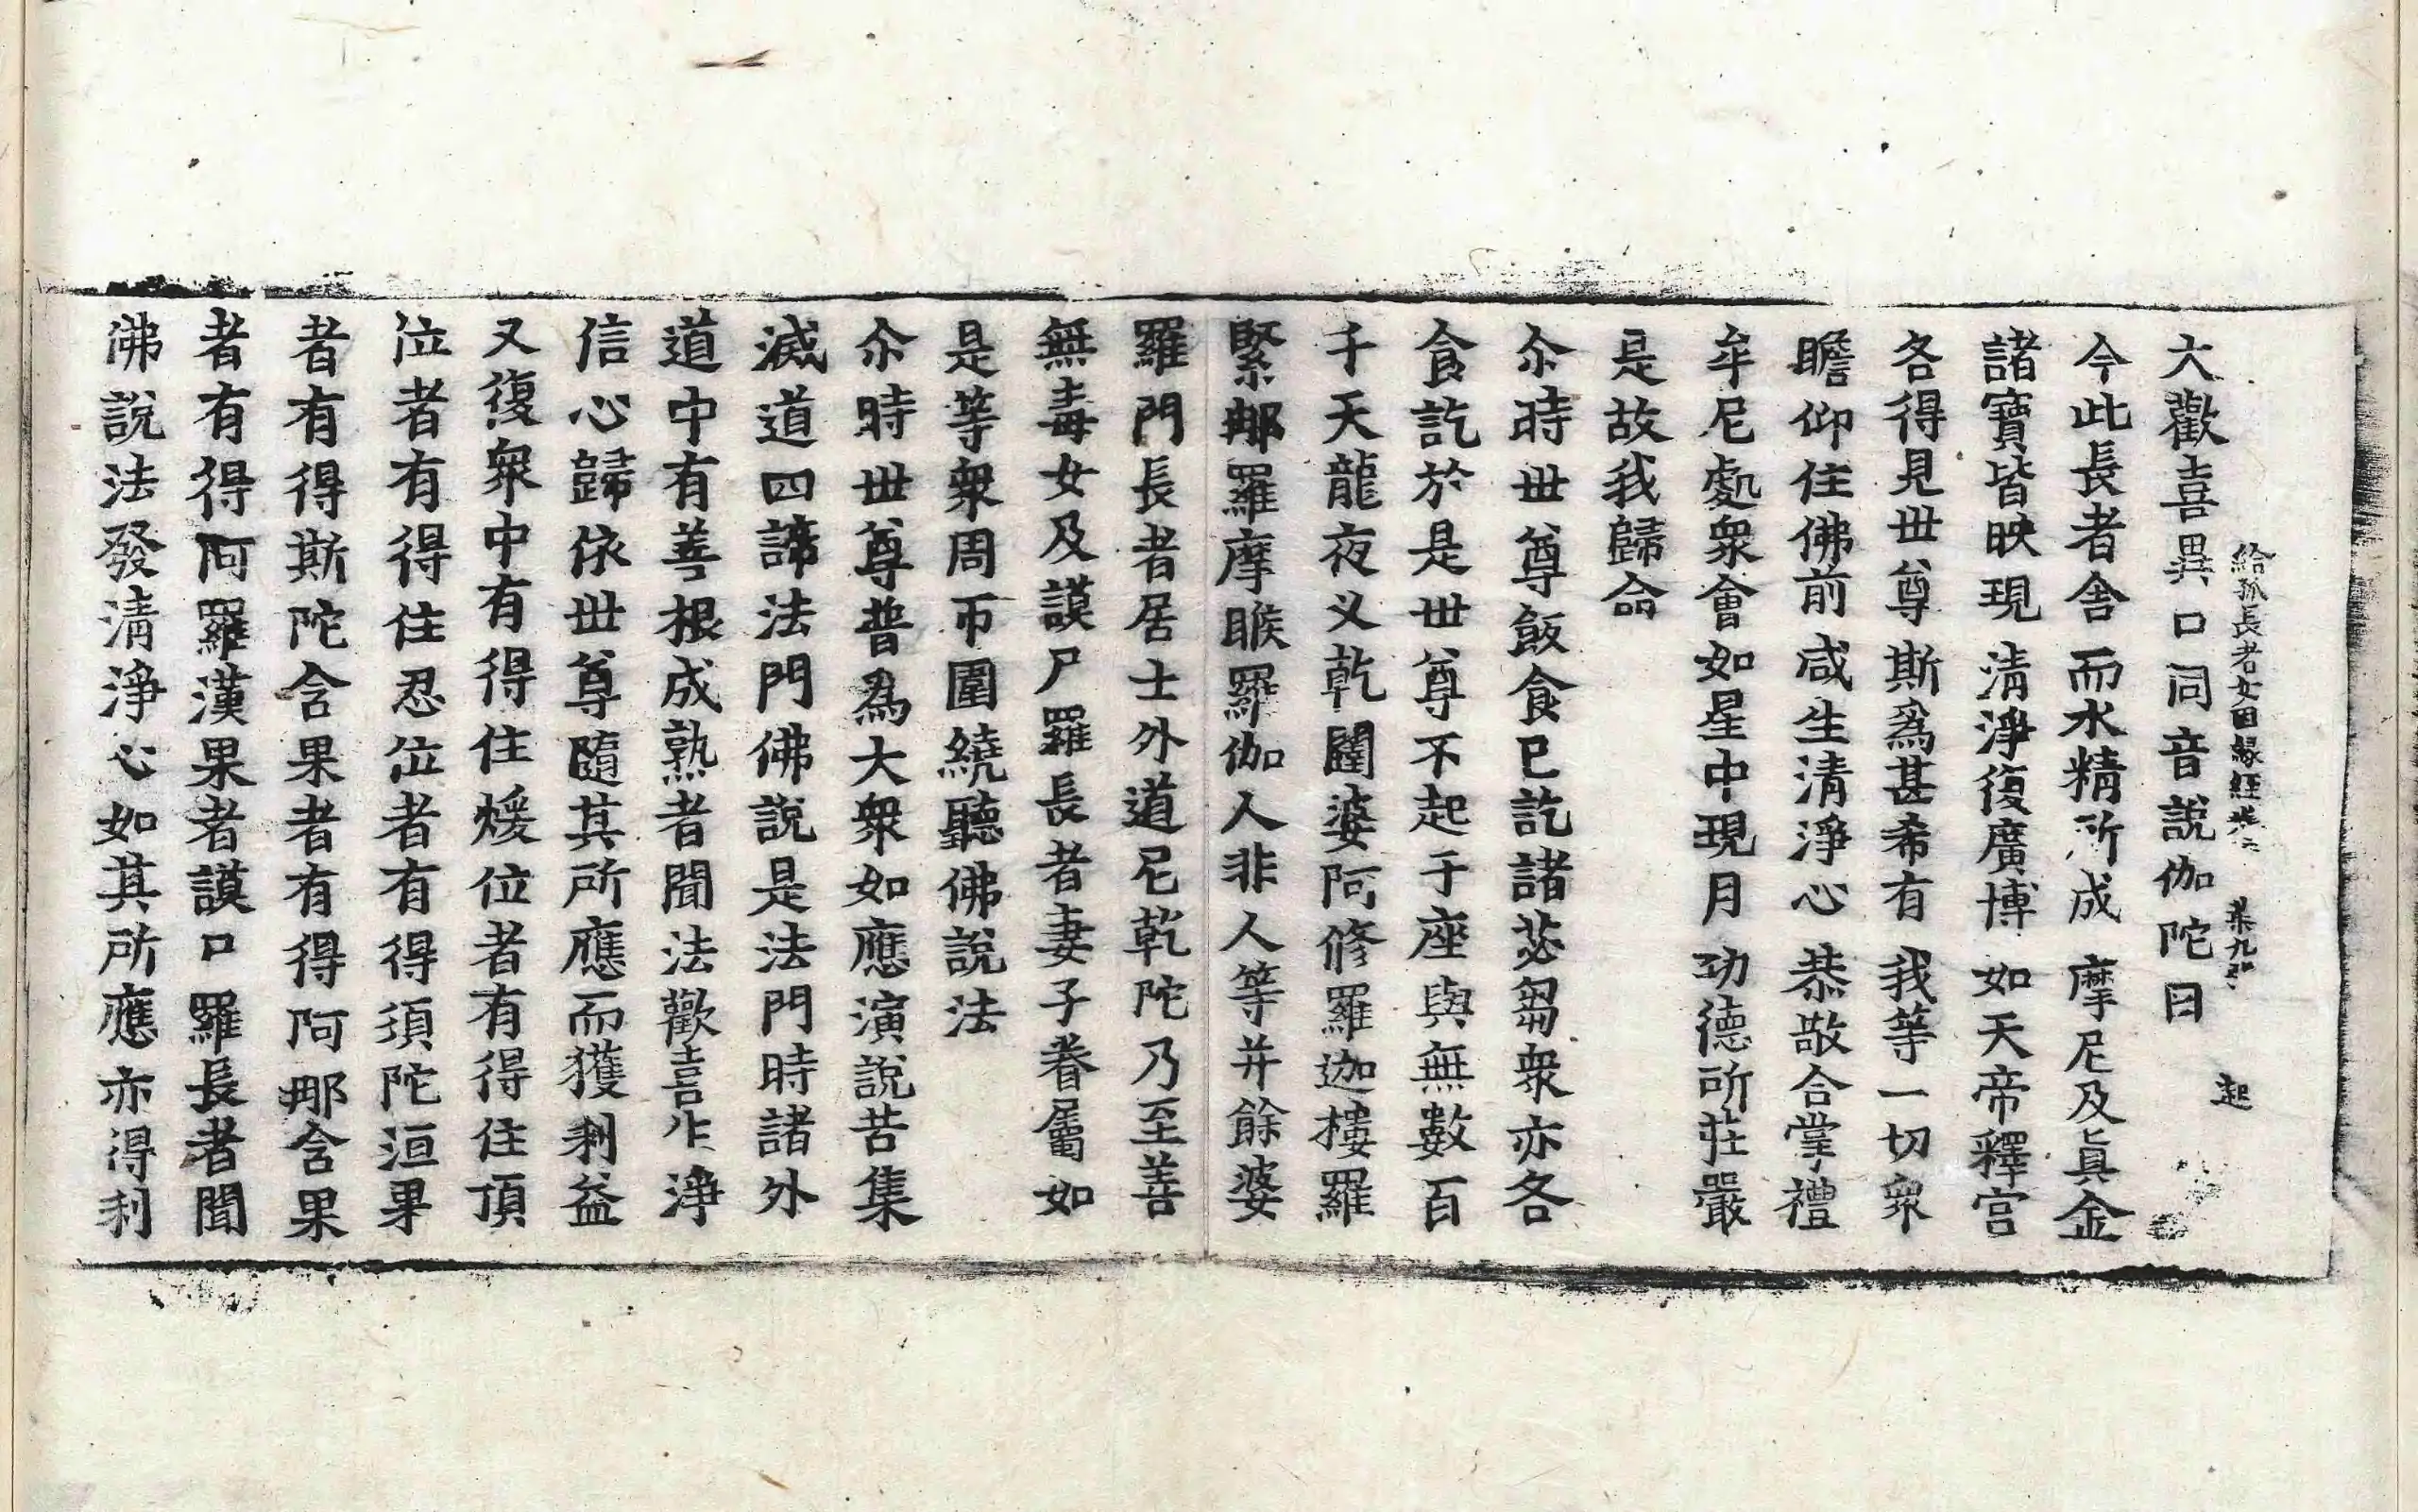 給孤長者女因緣經卷 第九張 起
大歡喜異口同音說伽陀曰
今此長者舍而水精所成 摩尼及眞金
諸寶皆映現 清淨復廣博 如天帝釋宮
各得見世尊 斯爲甚希有 我等一切衆
瞻仰住佛前 咸生清淨心 恭敬合掌禮
牟尼處衆會 如星中現月 功德所莊嚴
是故我歸命
尒時世尊飯食已訖諸苾芻衆亦各
食訖於是世尊不起于座與無數百
千天龍夜叉乾闥婆阿修羅迦樓羅
緊那羅摩睺羅伽人非人等并餘婆
羅門長者居士外道尼乾陀乃至善
無毒女及謨尸羅長者妻子眷屬如
是等衆周帀圍繞聽佛說法
尒時世尊普爲大衆如應演說苦集
滅道四諦法門佛說是法門時諸外
道中有善根成熟者聞法歡喜生淨
信心歸依世尊隨其所應而獲利益
又復衆中有得住煖位者有得住頂
位者有得住忍位者有得須陀洹果
者有得斯陀含果者有得阿那含果
者有得阿羅漢果者謨尸羅長者聞
佛說法發清淨心如其所應亦得利